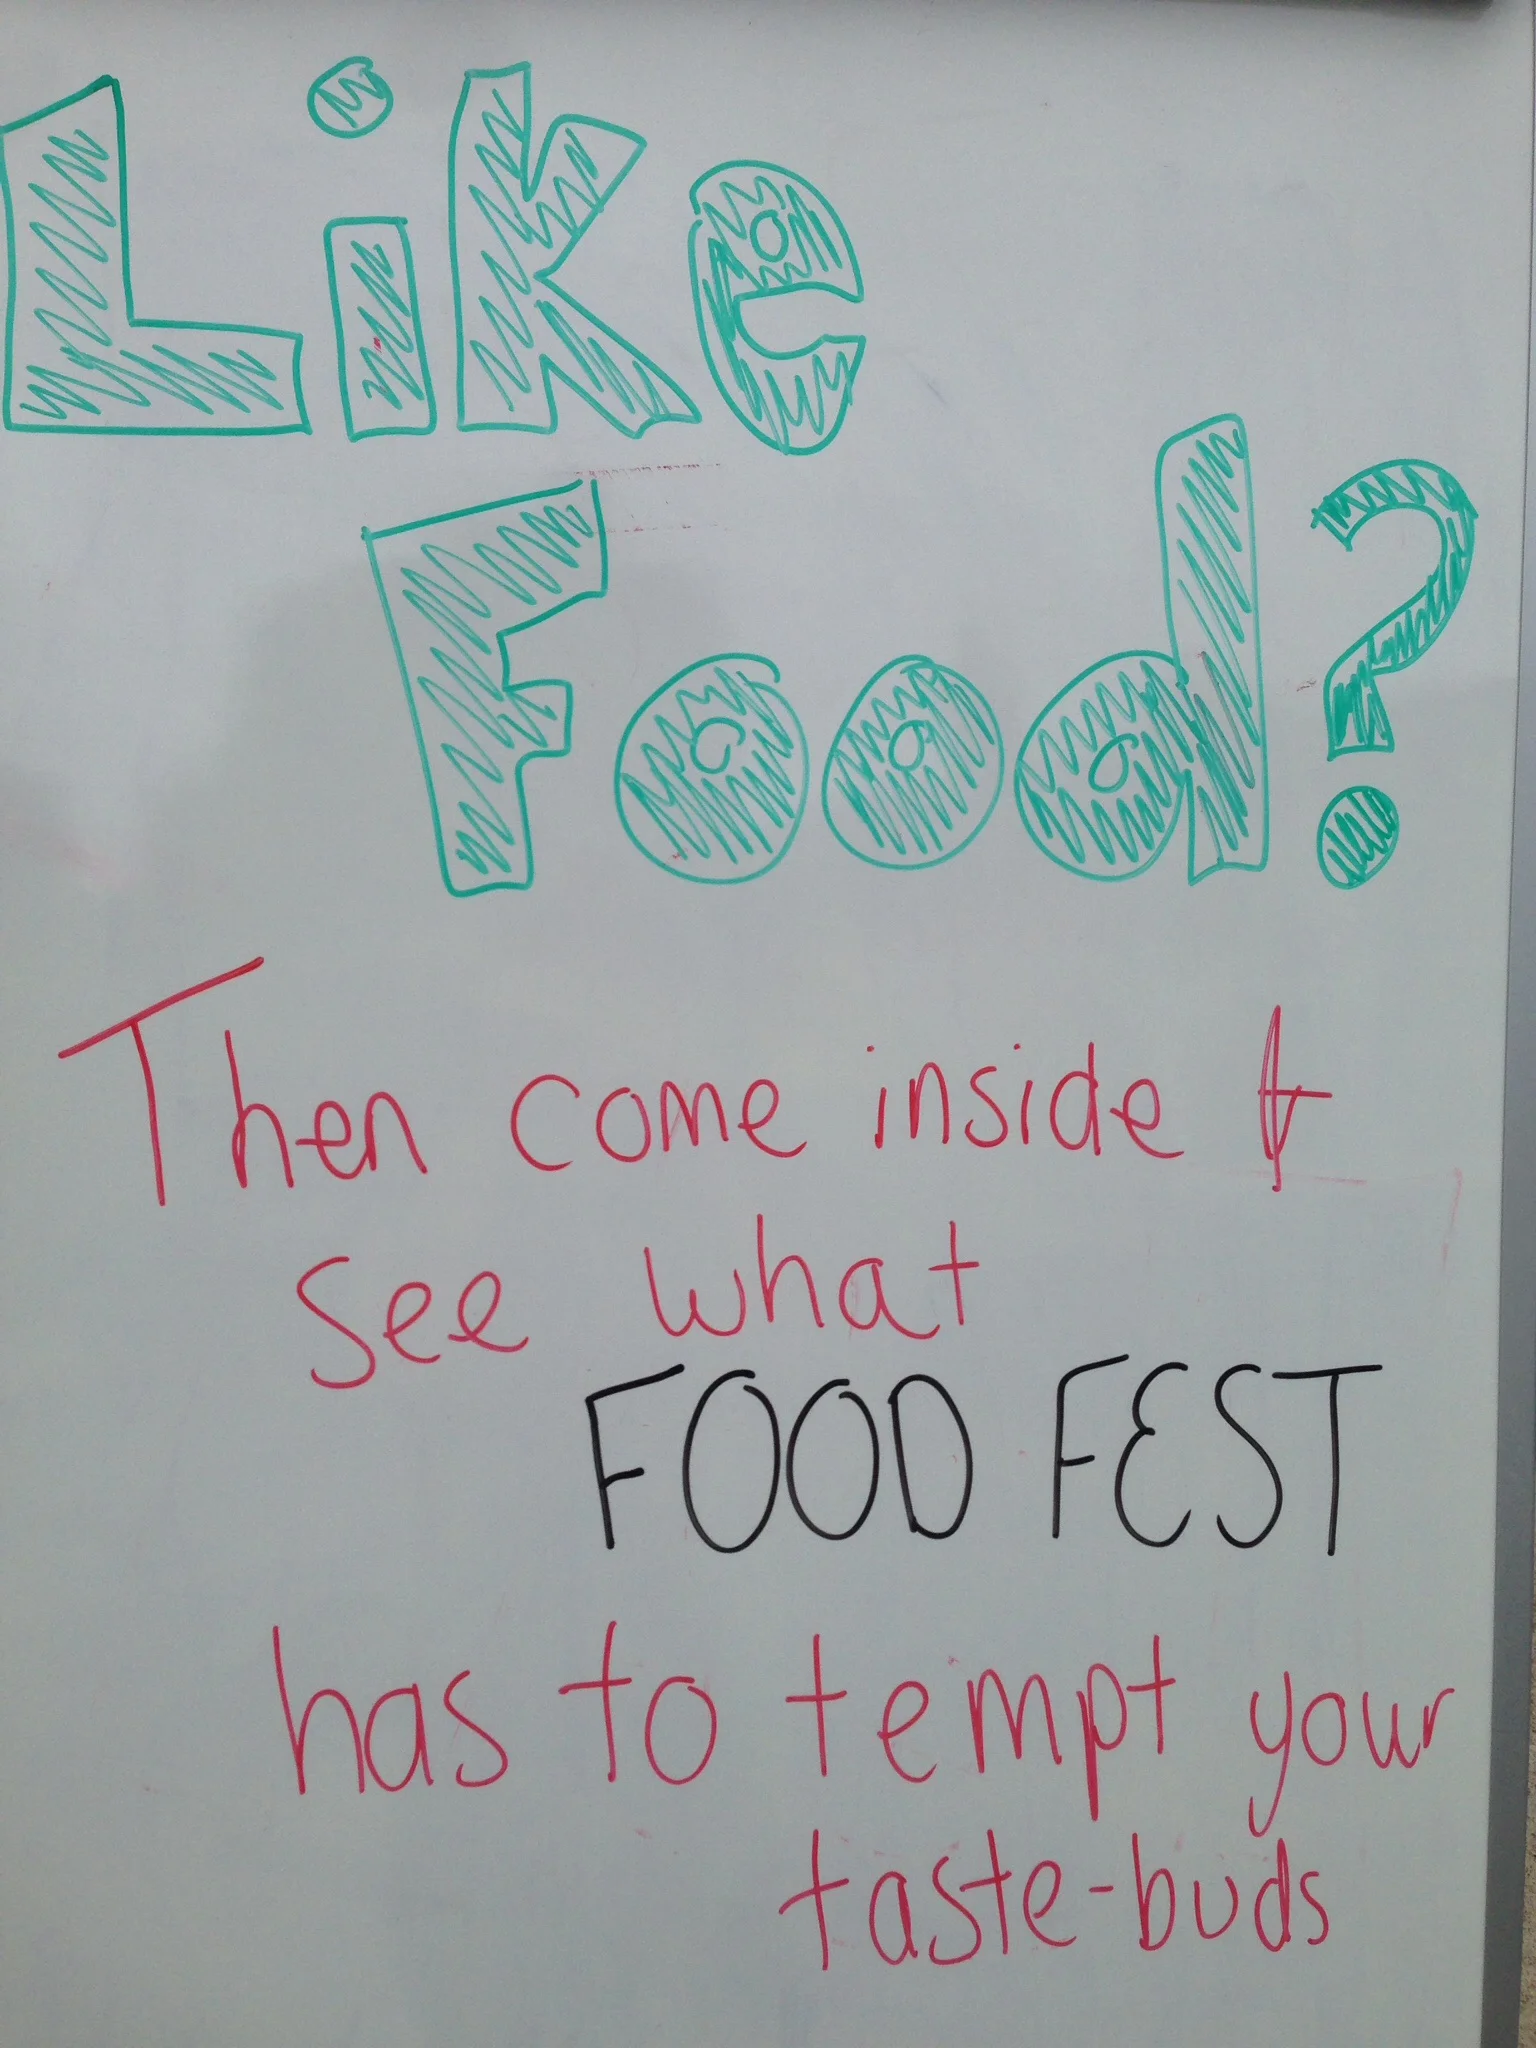 Like
Food?
Then come inside &
see what
FOOD FEST
has to tempt your
taste-buds